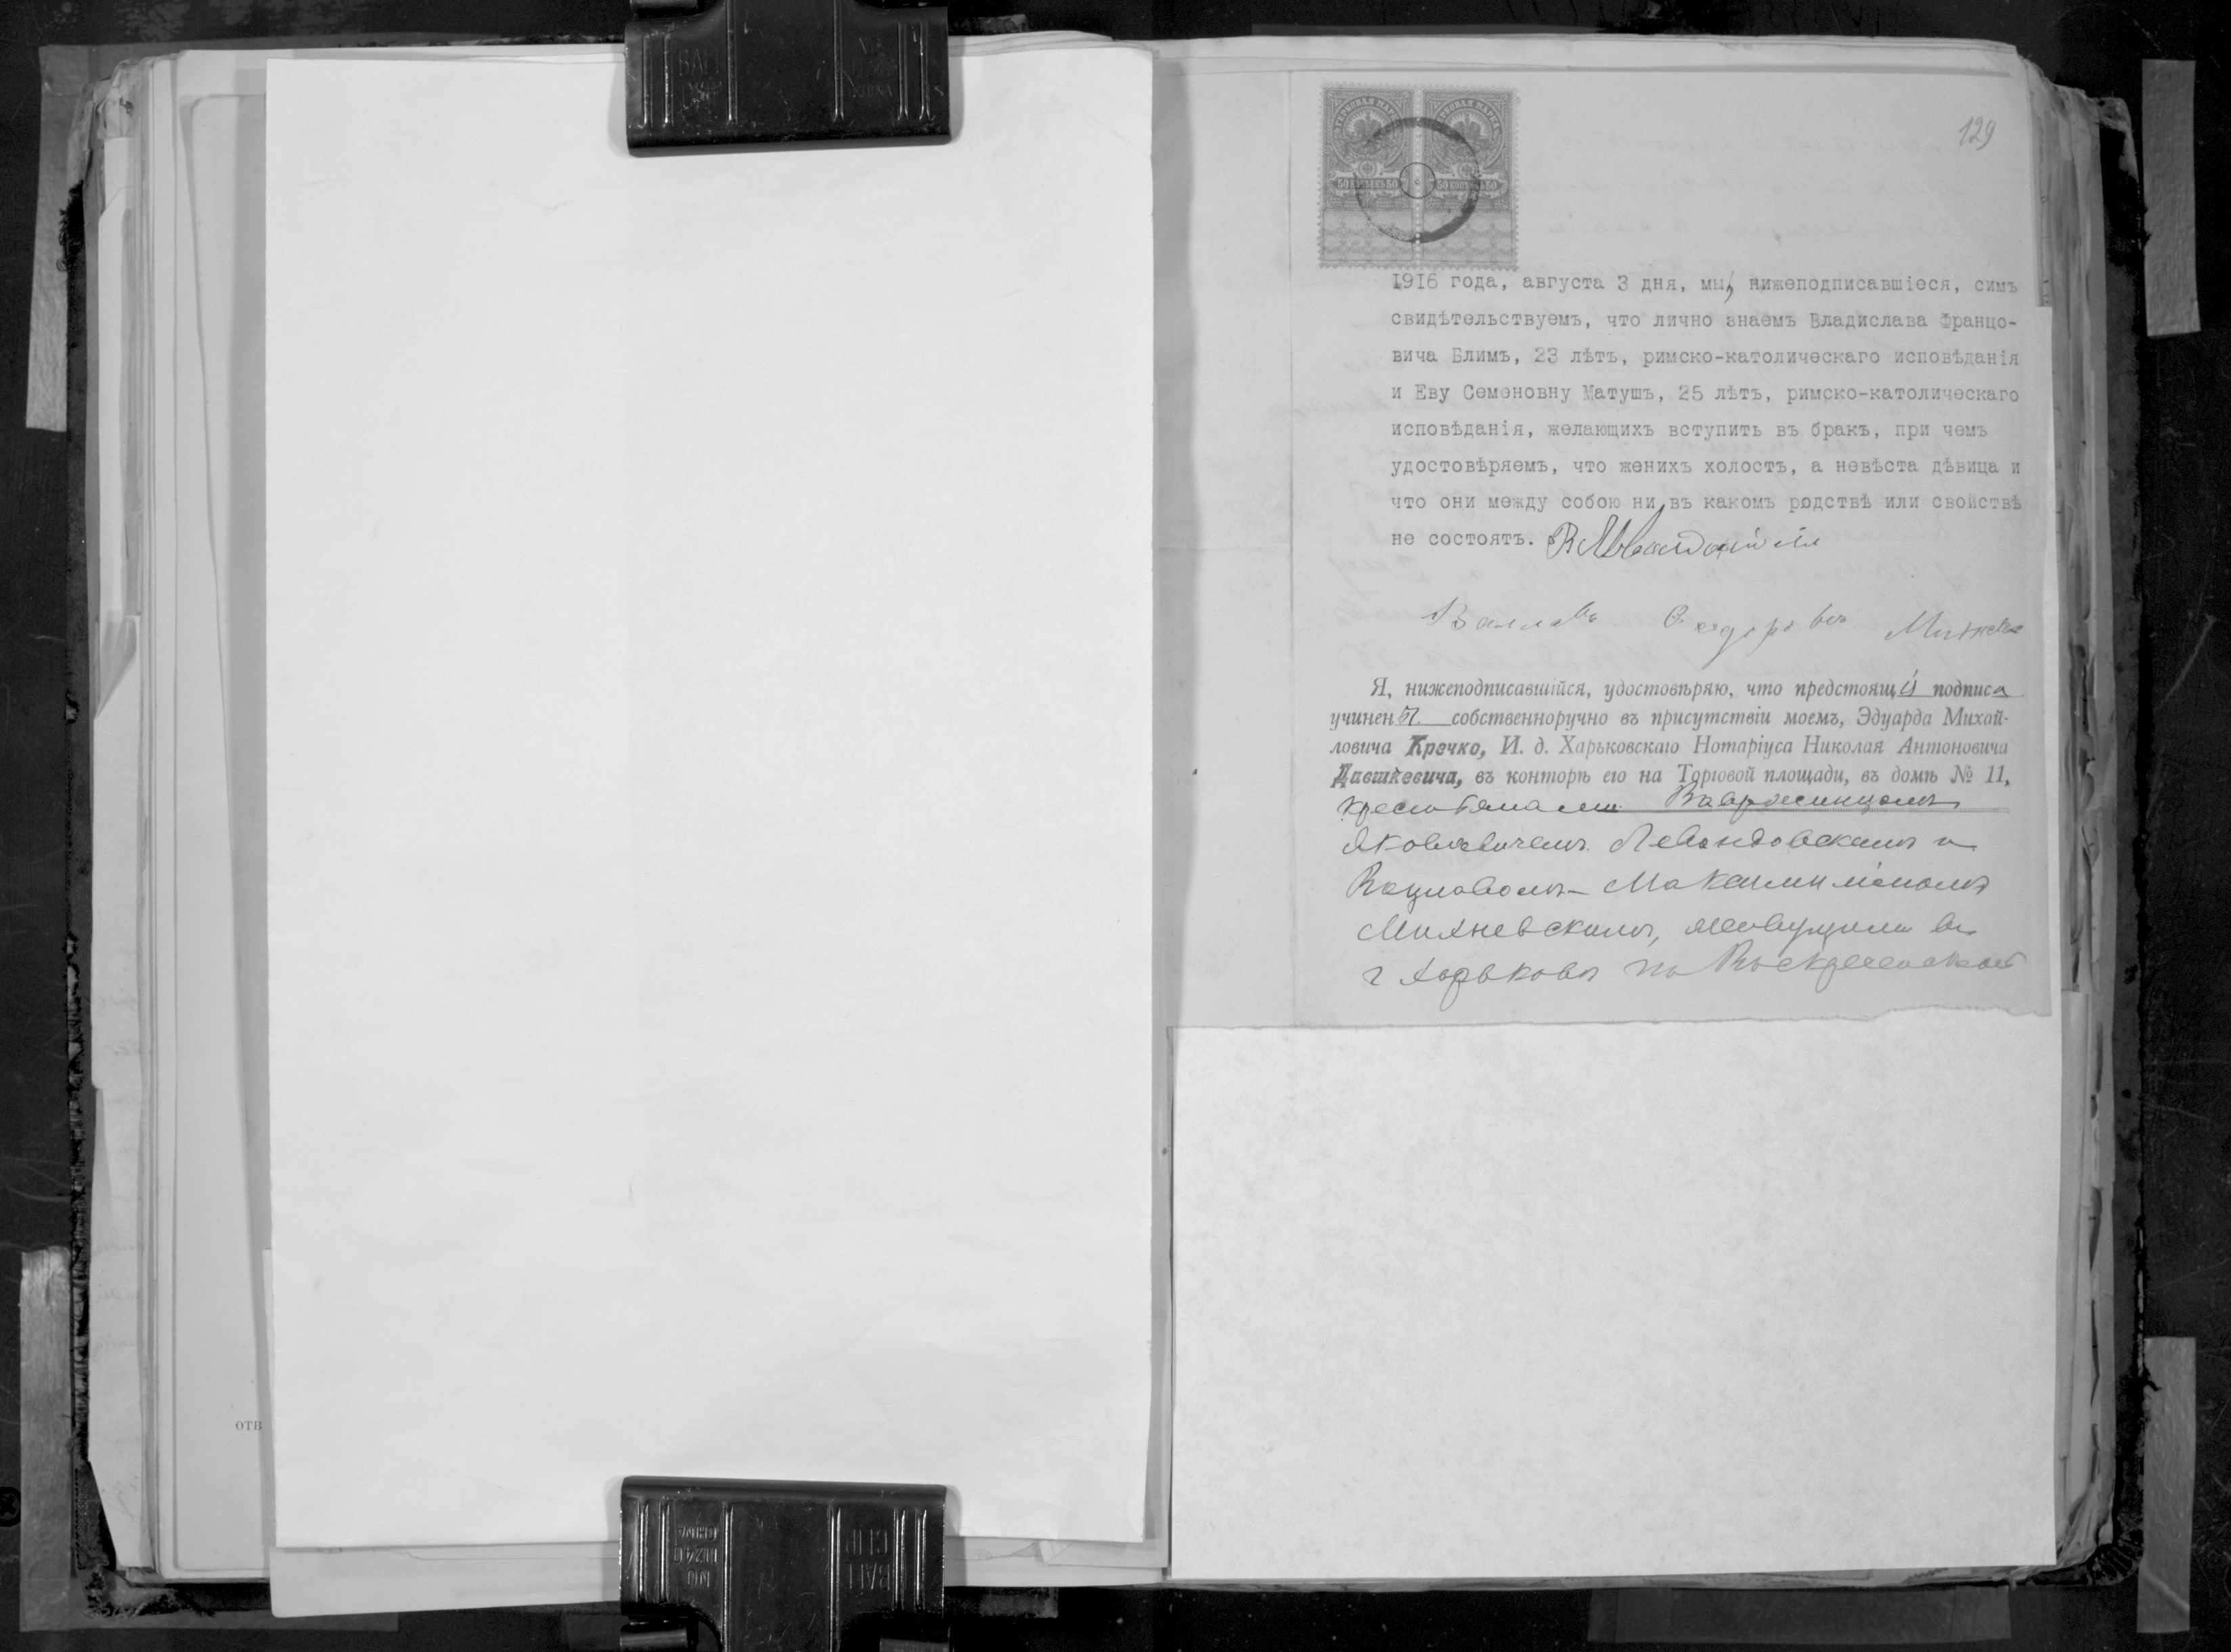 129
ГЕРБОВАЯ МАРКА ГЕРБОВАЯ МАРКА
50 КОПѢЕКЪ 50 50 КОПѢЕКЪ 50
1916 года, августа 3 дня, мы, нижеподписавшіеся, симъ
свидѣтельствуемъ, что лично знаемъ Владислава Францо-
вича Блимъ, 23 лѣтъ, римско-католическаго исповѣданія
и Еву Семеновну Матушъ, 25 лѣтъ, римско-католическаго
исповѣданія, желающихъ вступить въ бракъ, при чемъ
удостовѣряемъ, что женихъ холостъ, а невѣста дѣвица и
что они между собою ни въ какомъ родствѣ или свойствѣ
не состоятъ.
Я, нижеподписавшійся, удостовѣряю, что предстоящія подписи
учинены собственноручно въ присутствіи моемъ, Эдуарда Михай-
ловича Кречко, И. д. Харьковскаго Нотаріуса Николая Антоновича
Дашкевича, въ конторѣ его на Торговой площади, въ домѣ № 11,
крестьянами Вавржинцемъ
Яковлевичемъ Левандовскимъ и
Вацлавомъ Максиміліаномъ
Михневскимъ, живущими въ
г Харьковѣ по Воскресенской
отв